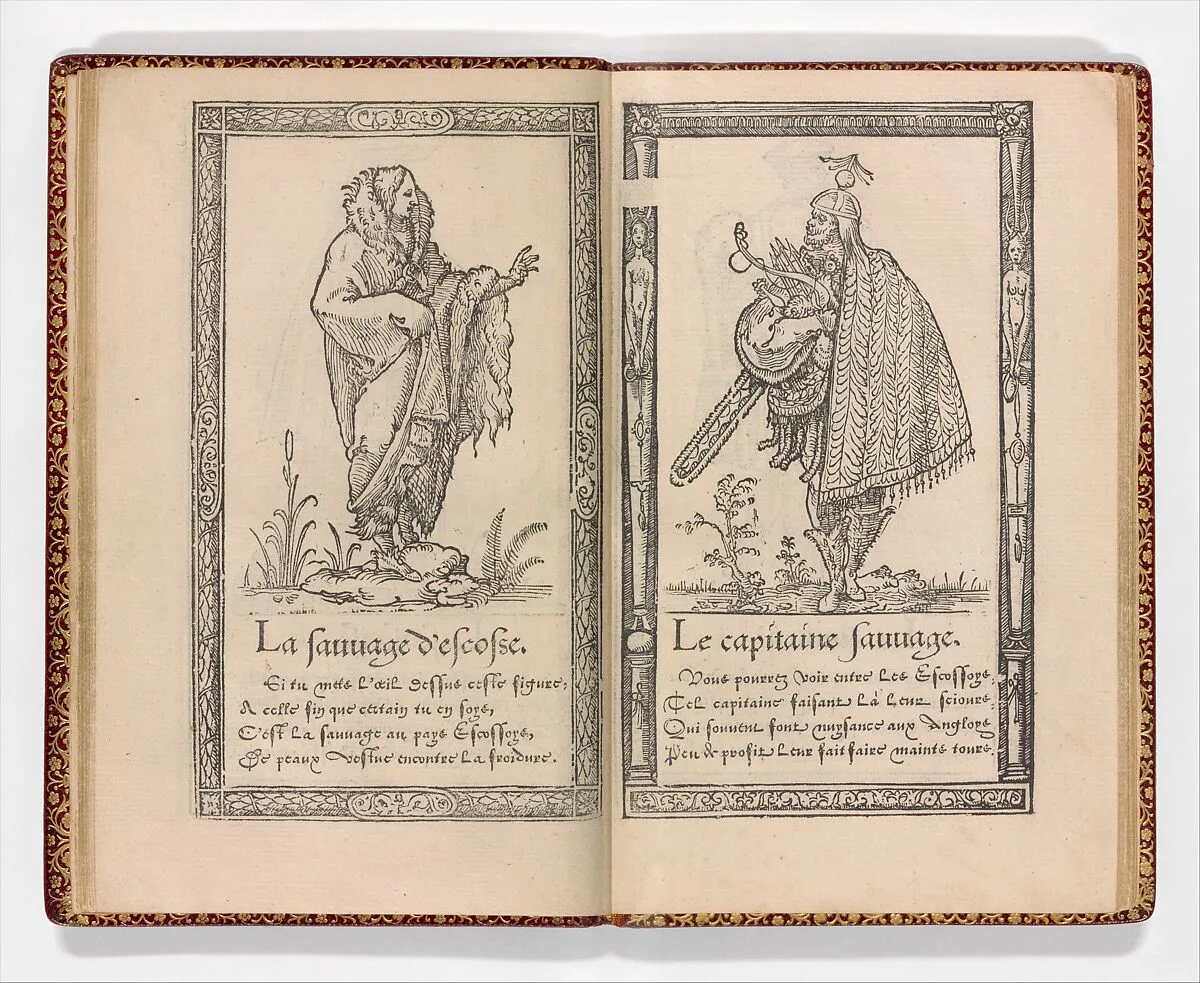 La sauuage d'escosse.
Si tu metz l'œil dessus ceste figure,
A celle fin que certain tu en soys,
C'est la sauuage au pays Escossoys,
De peaux vestue encontre la froidure.
Le capitaine sauuage.
Vous pourrez voir entre les Escossoys,
Tel capitaine faisant là leur seiours,
Qui souuent font nuysance aux Angloys
Peu de profit leur fait faire maints tours.